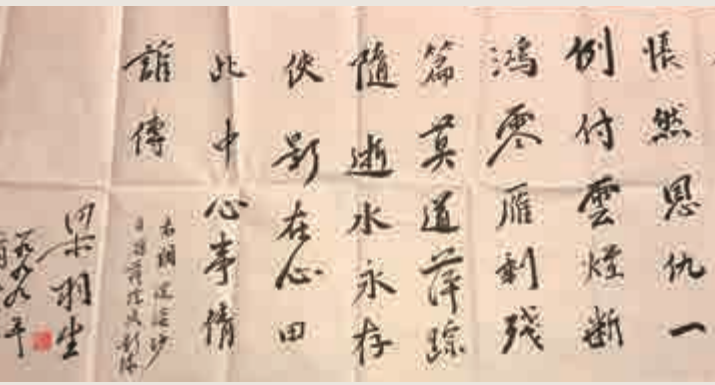 悵然恩仇一
例付雲煙断
鴻零雁剩残
篇莫道萍踪
隨逝水永存
侠影在心田
此中心事倩
誰傳
右調浣溪沙
自題萍踪侠影錄
梁羽生
一九九九年